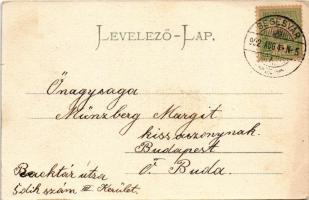 LEVELEZŐ-LAP.
SEGESVÁR
Önagysaga
Münzberg Margit
kissaszonynak.
Budapest
Ó Buda.
Raktár útsa
5dik szám III Kerület.